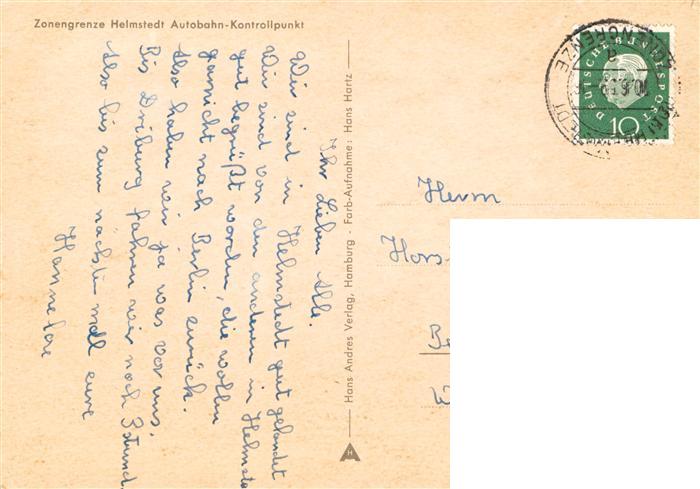 Zonengrenze Helmstedt Autobahn-Kontrollpunkt
Ihr Lieben Alle.
Wir sind in Helmstedt gut gelandet
Wir sind von den anderen in Helmste
gut begrüßt worden, die wollen
garnicht nach Berlin zurück.
Also haben wir ja was vor uns,
Bis Driburg fahren wir noch 3 Stund.
Also bis zum nächsten mal eure
Hannelore
Hans Andres Verlag, Hamburg · Farb-Aufnahme: Hans Hartz
H
Herrn
Hors
Be
DEUTSCHE BUNDESPOST
10